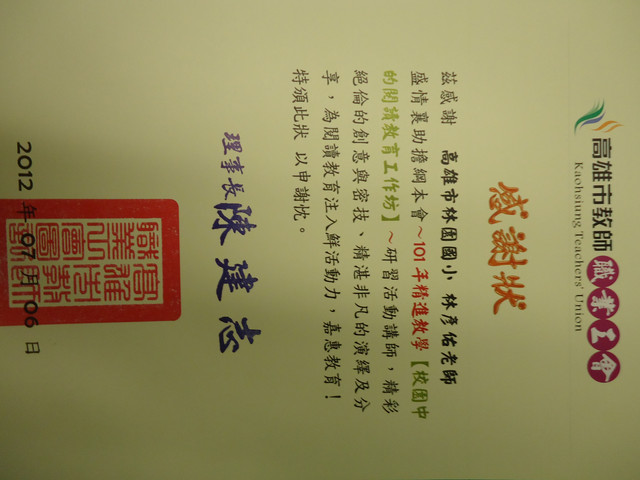 高雄市教師職業工會
Kaohsiung Teachers' Union
感謝狀
茲感謝 高雄市林園國小 林彥佑老師
盛情襄助擔綱本會～101年精進教學【校園中
的閱讀教育工作坊】～研習活動講師，精彩
絕倫的創意與密技、精湛非凡的演繹及分
享，為閱讀教育注入鮮活動力，嘉惠教育！
特頒此狀 以申謝忱。
理事長 陳建志
2012 年 07 月 06 日